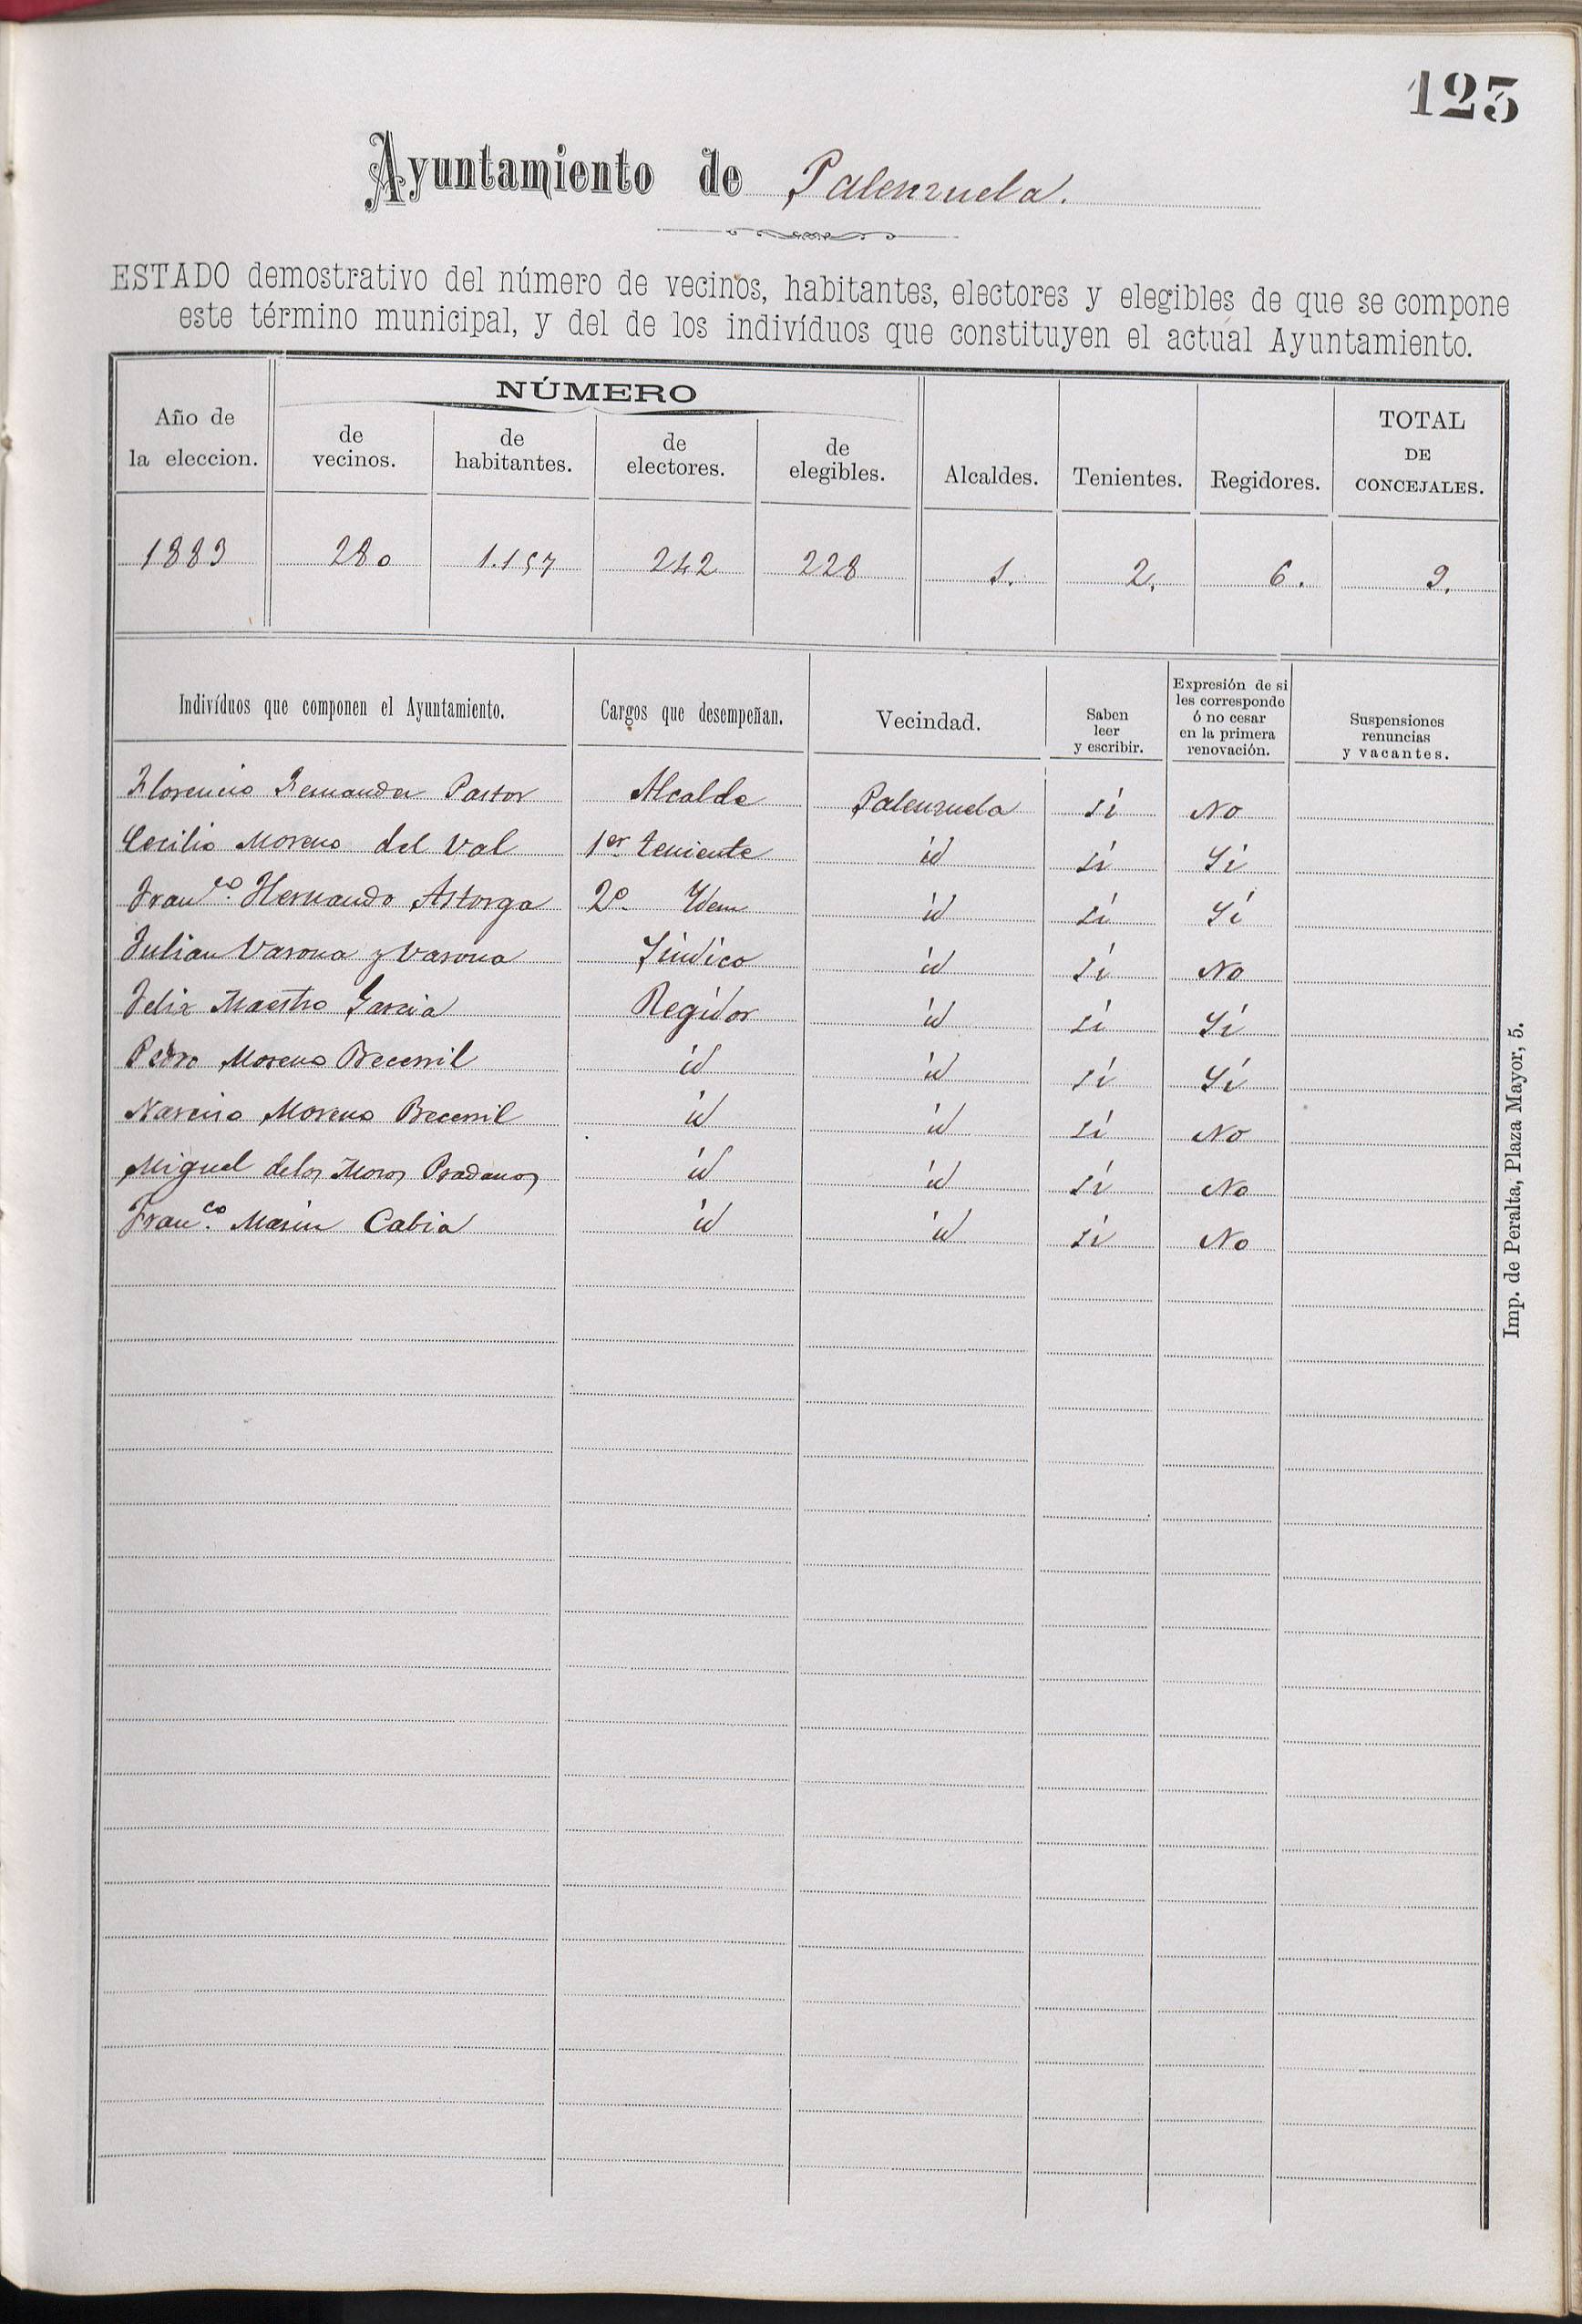 123
Ayuntamiento de Palenzuela.
ESTADO demostrativo del número de vecinos, habitantes, electores y elegibles de que se compone
este término municipal, y del de los indivíduos que constituyen el actual Ayuntamiento.
Año de la eleccion. NÚMERO de vecinos. de habitantes. de electores. de elegibles. Alcaldes. Tenientes. Regidores. TOTAL DE CONCEJALES.
1883 280 1.157 242 228 1. 2. 6. 9.
Indivíduos que componen el Ayuntamiento. Cargos que desempeñan. Vecindad. Saben leer y escribir. Expresión de si les corresponde ó no cesar en la primera renovación. Suspensiones renuncias y vacantes.
Florencio Fernandez Pastor Alcalde Palenzuela si No
Cecilio Moreno del Val 1er teniente id si Si
Franco. Hernando Astorga 2o. Idem id si Si
Julian Varona y Varona Síndico id si No
Felix Maestro Garcia Regidor id si Si
Pedro Moreno Becerril id id si Si
Narciso Moreno Becerril id id si No
Miguel delos Mozos Pradanos id id si No
Franco. Marin Cabia id id si No
Imp. de Peralta, Plaza Mayor, 5.